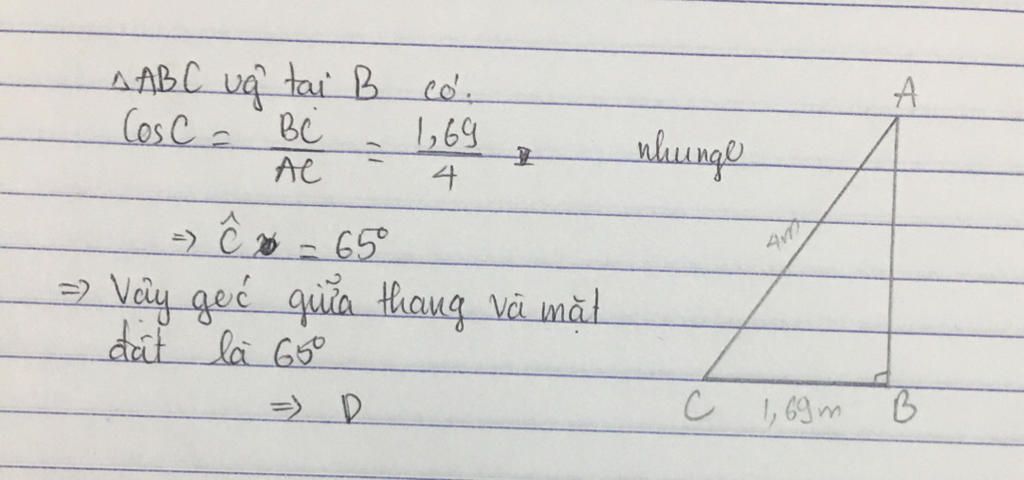 △ABC vg̀ tại B có.
CosC = BC/AC = 1,69/4
nhungo
⇒ Ĉ = 65°
⇒ Vậy góc giữa thang và mặt
đất là 65°
⇒ D
A
4m
C 1,69m B